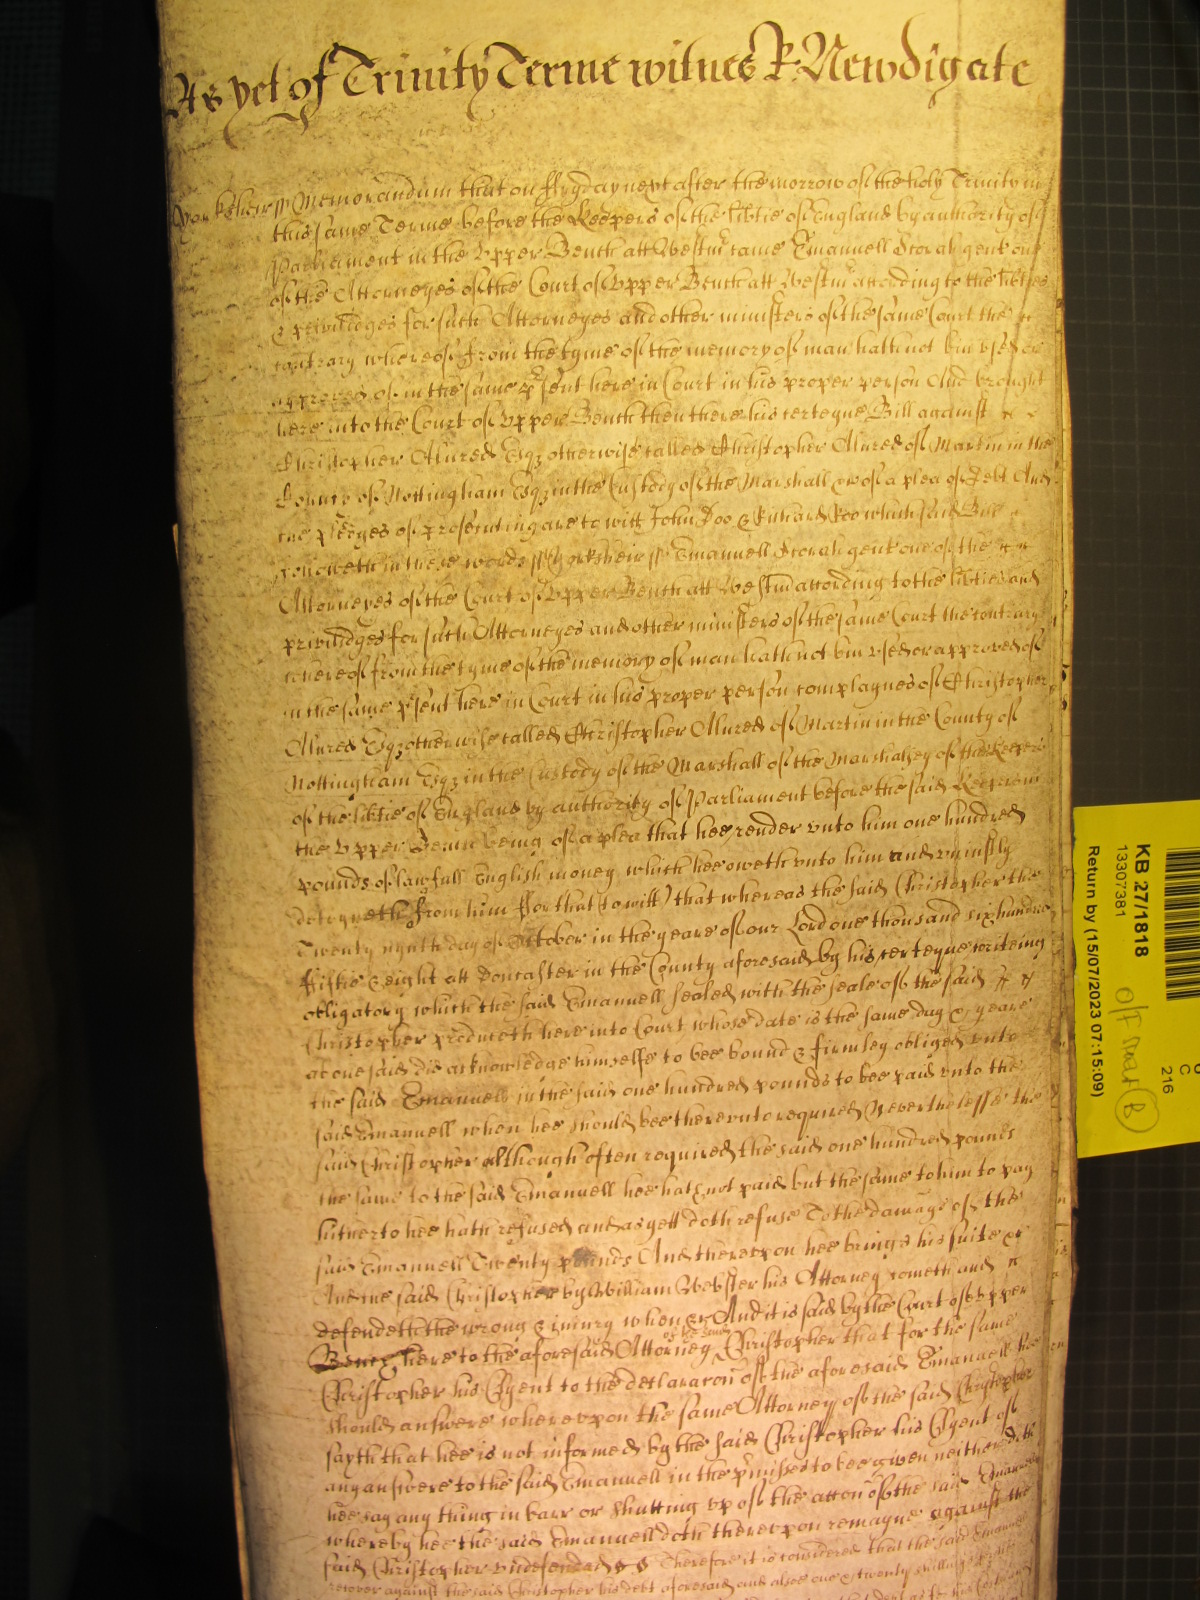 As yet of Trinity Terme witnes R. Newdigate
Yorkesheir ss Memorandum that on ffryday next after the morrow of the holy Trinity in
this same Terme before the Keepers of the lib'tie of England by authority of
Parliament in the Upper Bench att Westm' came Emanuell Scorah gent one
of the Attorneyes of the Court of Upper Bench att Westm' according to the lib'ties
& priviledges for such Attorneyes and other ministers of the same Court the
contrary whereof from the tyme of the memory of man hath not bin vsed or
approved of in the same p'sent here in Court in his proper person And brought
here into the Court of Upper Bench then there his certeyne Bill against
Christopher Alured Esqz otherwise called Christopher Alured of Martin in the
County of Nottingham Esqz in the Custody of the Marshall &c of a plea of debt And
the pledges of prosecuting are to witt John Doo & Richard Roo which said Bill
followeth in these words ss Yorkesheir ss Emanuell Scorah gent one of the
Attorneyes of the Court of Upper Bench att Westm' according to the lib'ties and
priviledges for such Attorneyes and other ministers of the same Court the contrary
whereof from the tyme of the memory of man hath not bin vsed or approved of
in the same p'sent here in Court in his proper person complaynes of Christopher
Alured Esqz otherwise called Christopher Alured of Martin in the County of
Nottingham Esqz in the Custody of the Marshall of the Marshalsey of the Keepers
of the lib'tie of England by authority of Parliament before the said Keepers in
the Upper Bench being of a plea that hee render vnto him one hundred
pounds of lawfull English money which hee oweth vnto him and vniustly
deteyneth from him For that (to witt) that whereas the said Christopher the
Twenty nynth day of October in the yeare of our Lord one thousand six hundred
fiftie & eight att Doncaster in the County aforesaid by his certeyne writeing
obligatory which the said Emanuell sealed with the seale of the said
Christopher produceth here into Court whose date is the same day & yeare
aboue said did acknowledge himselfe to bee bound & firmley obliged vnto
the said Emanuell in the said one hundred pounds to bee paid vnto the
said Emanuell when hee should bee therevnto required Neverthelesse the
said Christopher although often required the said one hundred pounds
the same to the said Emanuell hee hath not paid but the same to him to pay
hitherto hee hath refused and as yett doth refuse To the damage of the
said Emanuell Twenty pounds And therevpon hee brings his suite &c
And the said Christopher by William Webster his Attorney cometh and
defendeth the wrong & iniury when &c And it is said by the Court of Upper
Bench here to the aforesaid Attorney of the said Christopher that for the same
Christopher his Clyent to the declarac'on of the aforesaid Emanuell hee
should answere wherevpon the same Attorney of the said Christopher
sayth that hee is not informed by the said Christopher his Clyent of
any answere to the said Emanuell in the p'misses to bee given neither doth
hee say any thing in barr or shutting vp of the acc'on of the said Emanuell
whereby hee the said Emanuell doth therevpon remayne against the
said Christopher vndefended Therefore it is considered that the said Emanuell
recover against the said Christopher his debt aforesaid and alsoe
KB 27/1818
13307381
Return by (15/07/2023 07:15:09)
216
B